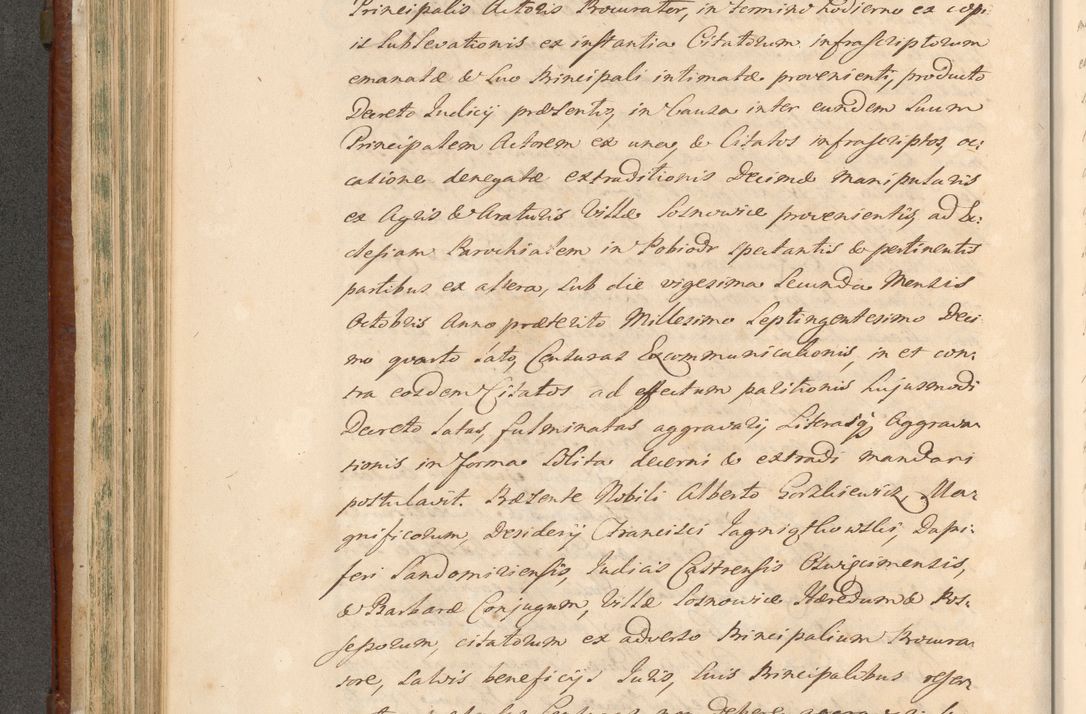 Principalis Actoris Procurator, in termino hodierno ex copi:
is sublevationis ex instantia Citatorum infrascriptorum
emanatæ & suo Principali intimatæ provenienti, producto
Decreto Iudicij præsentis, in Causa inter eundem suum
Principalem Actorem ex una, & Citatos infrascriptos, oc:
casione denegatæ extraditionis Decimæ Manipularis
ex Agris & Araturis Villæ Sosnowice provenientis, ad Ec:
clesiam Parochialem in Pobiodr spectantis & pertinentis
partibus ex altera, sub die vigesima secunda Mensis
Octobris Anno præterito Millesimo Septingentesimo Deci
mo quarto lato, Censuras Excommunicationis, in et con:
tra eosdem Citatos ad effectum paritionis hujusmodi
Decreto latas, fulminatas aggravari, Literasq; Aggrava:
tionis in forma solita decerni & extradi mandari
postulavit. Præsente Nobili Alberto Gorzkiewicz, Ma:
gnificorum, Desiderij Francisci Jagniątkowski, Dapi:
feri Sandomiriensis, Iudicis Castrensis Oswięcimensis,
& Barbaræ Conjugum, Villæ Sosnowice Hæredum & Pos:
sessorum, citatorum ex adverso Principalium Procura
tore, salvis beneficijs Iuris, suis Principalibus reser